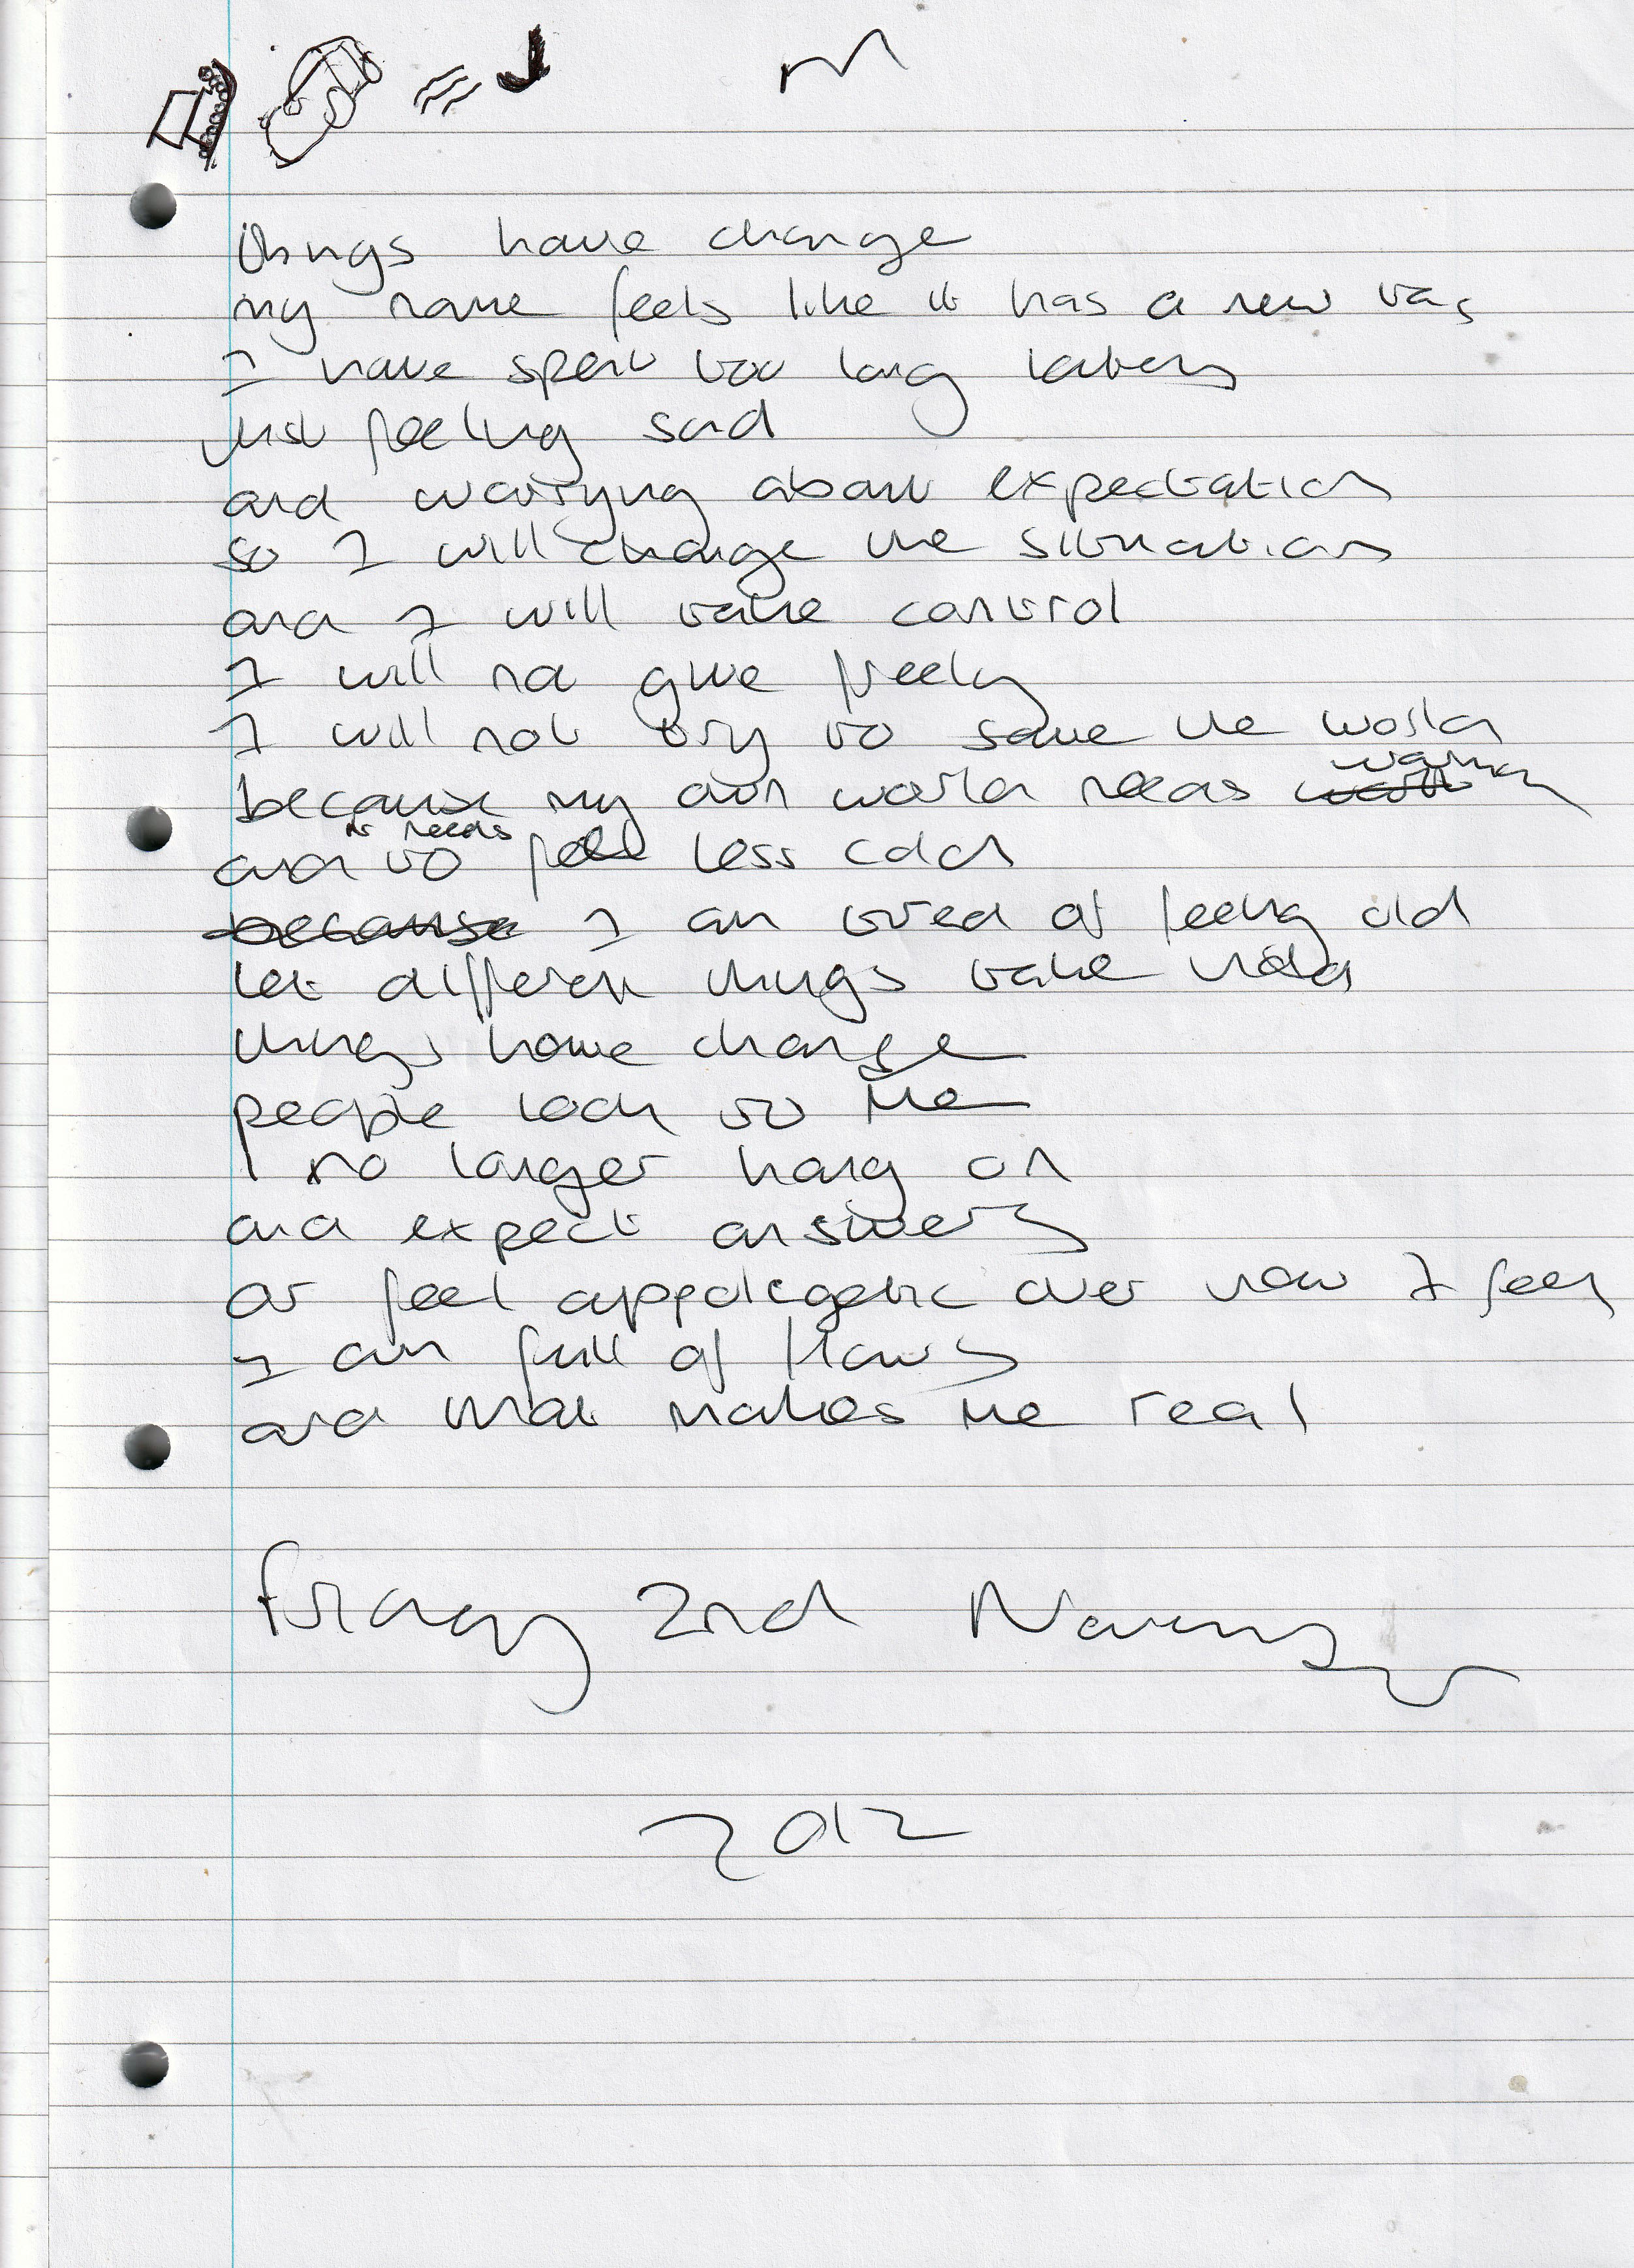 things have change
my name feels like it has a new tag
I have spent too long lately
just feeling sad
and worrying about expectation
so I will change the situation
and I will take control
I will not give freely
I will not try to save the world
because my own world needs warming
and it needs to feel less cold
because I am tired of feeling old
let different things take hold
things have change
people look to me
I no longer hang on
and expect answers
or feel appologetic over how I feel
I am full of flaws
and that makes me real
Friday 2nd November
2012